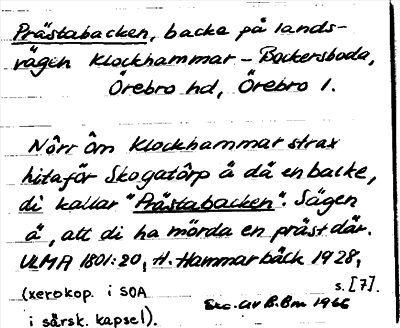 Prästabacken, backe på lands-
vägen Klockhammar - Bockersboda,
Örebro hd, Örebro l.
Nôrr ôm Klockhammar strax
hitaför Skogatôrp ä då en backe,
di kallar "Prästabacken". Sägen
ä, att di ha mörda en präst där.
ULMA 1801:20, H. Hammarbäck 1928,
s. [7].
(xerokop. i SOA
i särsk. kapsel).
Exc. av B.Bm 1966